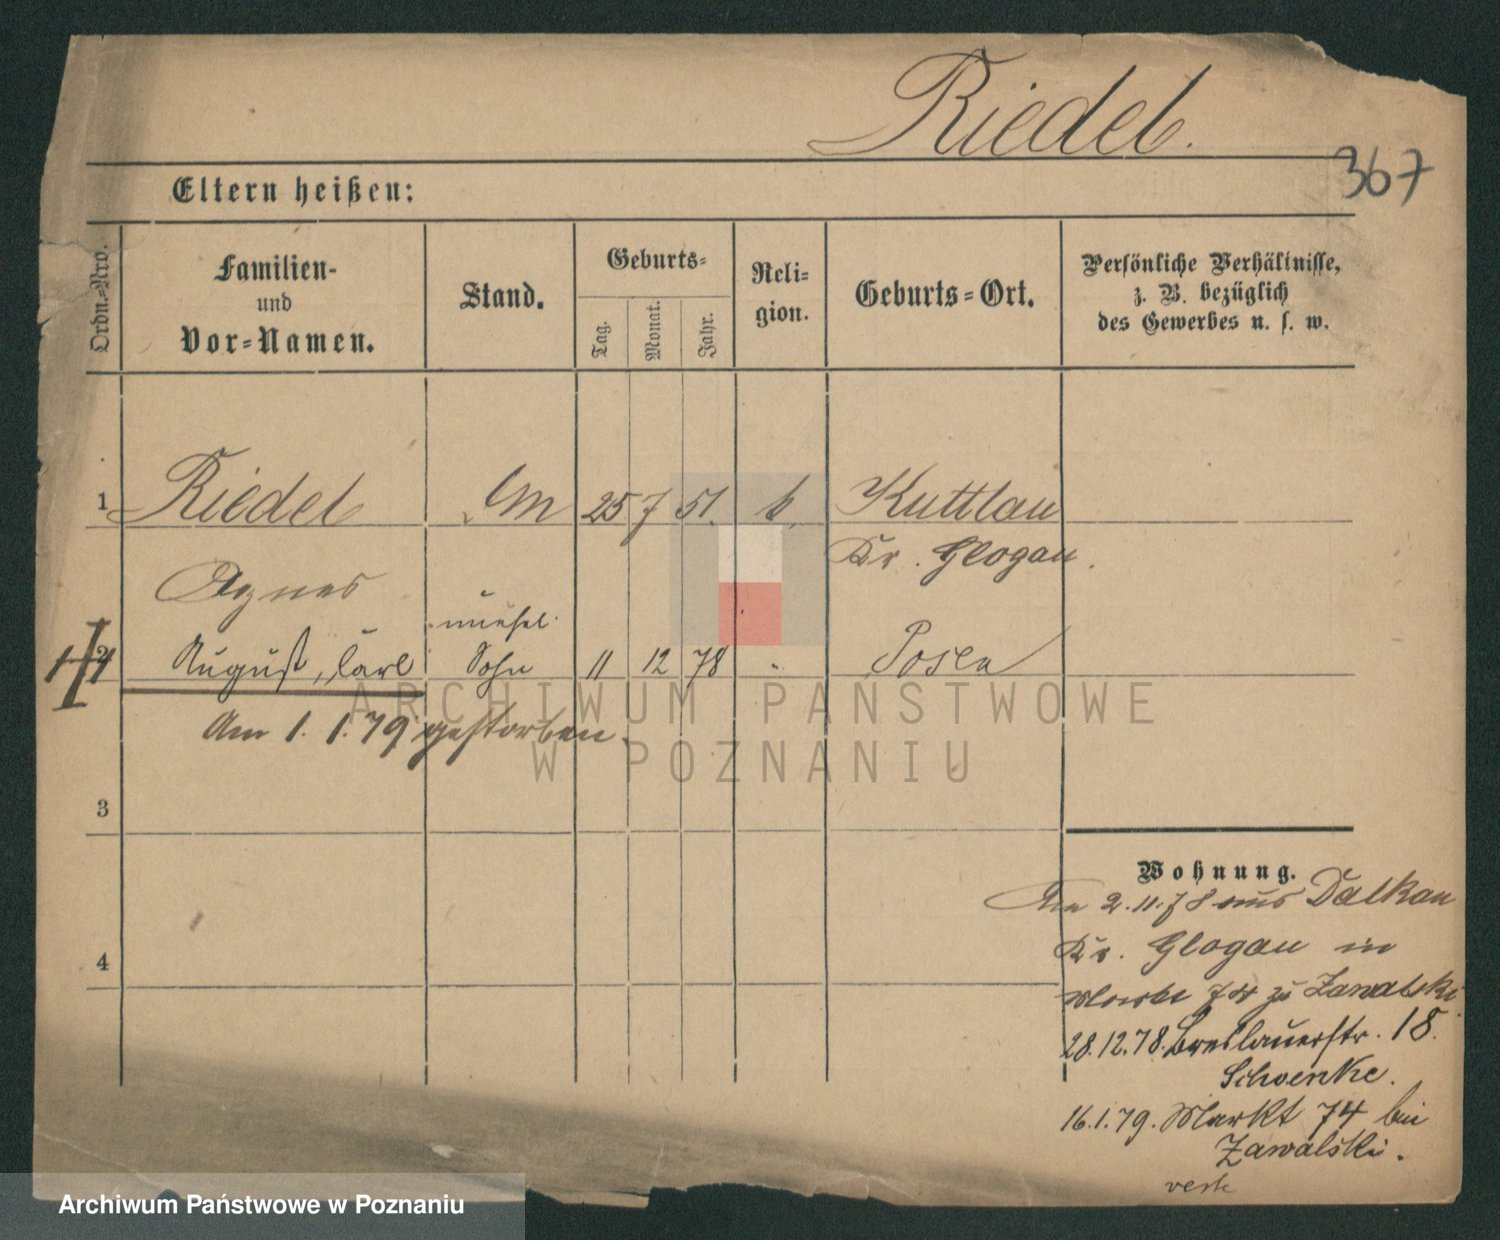 Riedel.
367
Eltern heißen:
Ordn.-Nro.
Familien-
und
Vor-Namen.
Stand.
Geburts-
Tag.
Monat.
Jahr.
Reli-
gion.
Geburts-Ort.
Persönliche Verhältnisse,
z. B. bezüglich
des Gewerbes u. s. w.
1 Riedel 25 7 51. k. Kuttlau
Kr. Glogau.
Agnes
unehel.
2 August, Carl Sohn 11 12 78 " Posen
Am 1. 1. 79 gestorben.
3
4
Wohnung.
Am 2.11.78 aus Dalkau
Kr. Glogau in
Markt 74 zu Zawalski.
28.12.78. Breslauerstr. 18.
Schoenke.
16.1.79. Markt 74 bei
Zawalski.
ARCHIWUM PAŃSTWOWE
W POZNANIU
Archiwum Państwowe w Poznaniu